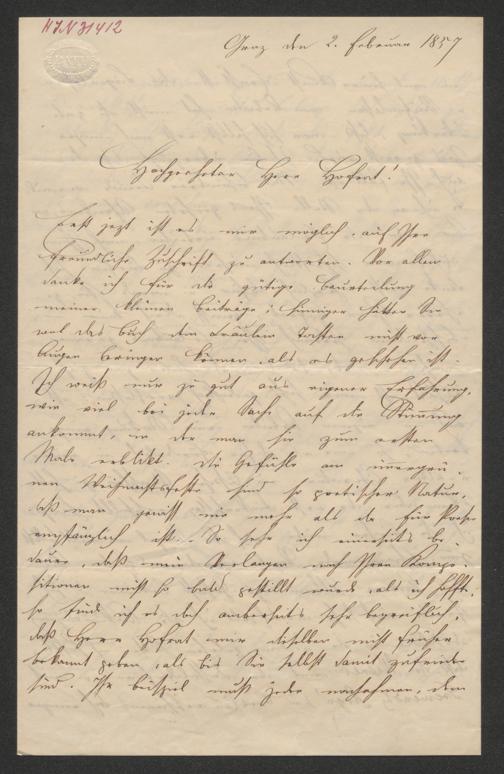 HIN 31412
Graz den 2. Februar 1857
Hochverehrter Herr Hofrat!
Erst jetzt ist es mir möglich, auf Ihre
freundliche Zuschrift zu antworten. Vor allem
danke ich für die gütige Beurteilung
meiner kleinen Beiträge; sinniger hätten Sie
wol das Buch dem Fräulein Tochter nicht vor
Augen bringen können, als es geschehen ist.
Ich weiß nur zu gut aus eigener Erfahrung,
wie viel bei jeder Sache auf die Stimmung
ankommt, in der man sie zum ersten
Male erblikt. Die Gefühle am
nen Weihnachtsfeste sind so poetischer Natur,
daß man gewiß nie mehr als da für Poesie
empfänglich ist. So sehr ich einerseits be-
daure, daß mein Verlangen nach Ihren Kompo-
sitionen nicht so bald gestillt wurde, als ich hoffte,
so finde ich es doch anderseits sehr begreiflich,
daß Herr Hofrat mir dieselben nicht früher
bekannt geben, als bis Sie selbst damit zufrieden
sind. Ihr Beispiel muß jeder nachahmen, dem